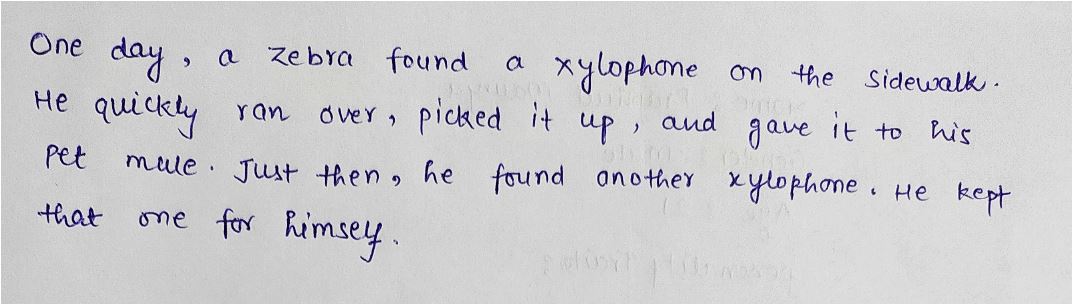 One day, a zebra found a xylophone on the sidewalk.
He quickly ran over, picked it up, and gave it to his
pet mule. Just then, he found another xylophone. He kept
that one for himself.